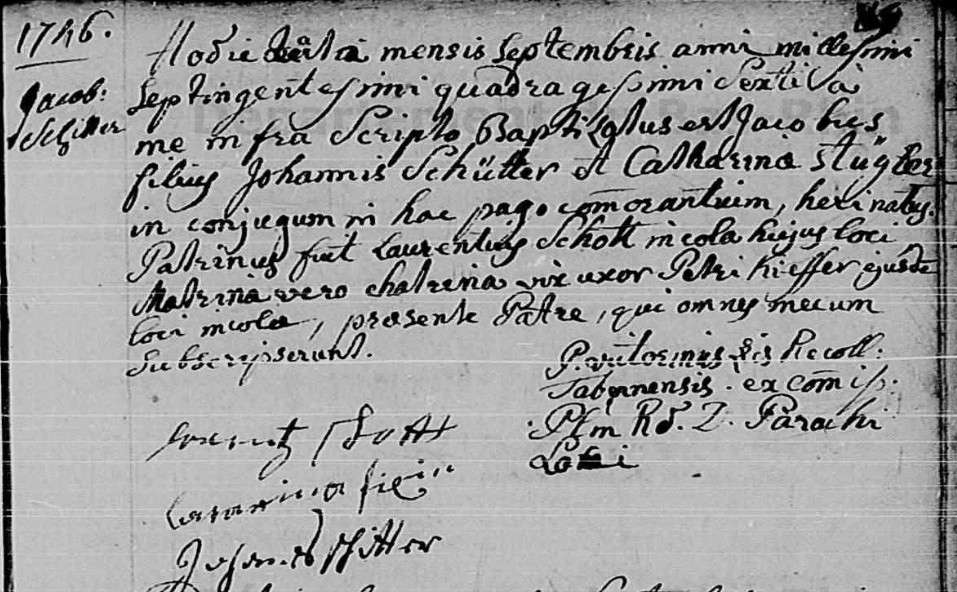 1746.
Jacob:
Schitter
Hodie mensis Septembris anni millesimi
Septingentesimi quadragesimi Sexti à
me infrà Scripto Baptizatus est Jacobus
filius Johannis Schütter et Catharinæ
in conjugum in hac pago com̄orantium, heri natus.
Patrinus fuit Laurentius Schott incola hujus loci
Matrina vero Chatrina uxor Petri Kieffer ejusd̄
loci incolæ, præsente Patre, qui omnes mecum
Subscripserunt.
P. Recoll:
Tabernensis. ex com̄iss.
Plm Rd. D. Parochi
Loci
Lorentz Schott
Johanes Schitter